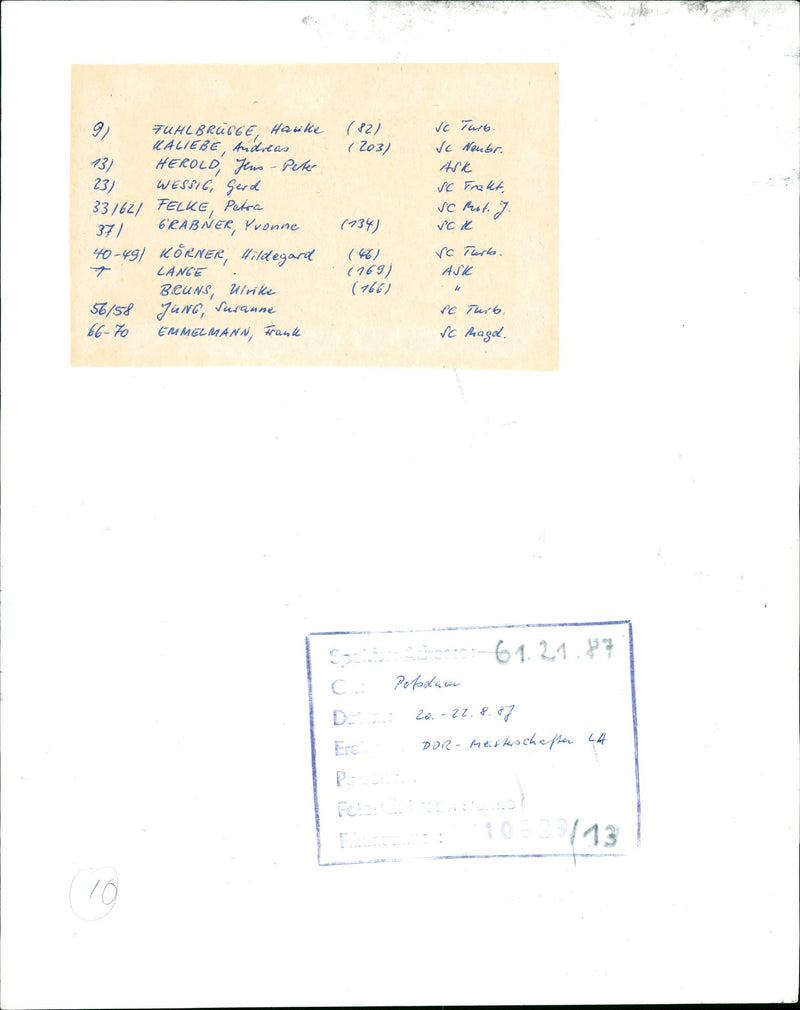 9) FUHLBRÜGGE, Hauke (82) SC Turb.
KALIEBE, Andreas (203) SC Neubr.
13) HEROLD, Jens-Peter ASK
23) WESSIG, Gerd SC Trakt.
33/62) FELKE, Petra SC Mot. J.
37) GRABNER, Yvonne (134) SC K
40-49) KÖRNER, Hildegard (46) SC Turb.
↑ LANGE (169) ASK
BRUNS, Ulrike (166) "
56/58 JUNG, Susanne SC Turb.
66-70 EMMELMANN, Frank SC Magd.
Speicher-Adresse: 61.21.87
Potsdam
20.-22.8.87
DDR-Meisterschaften LA
Foto:
10929/13
10